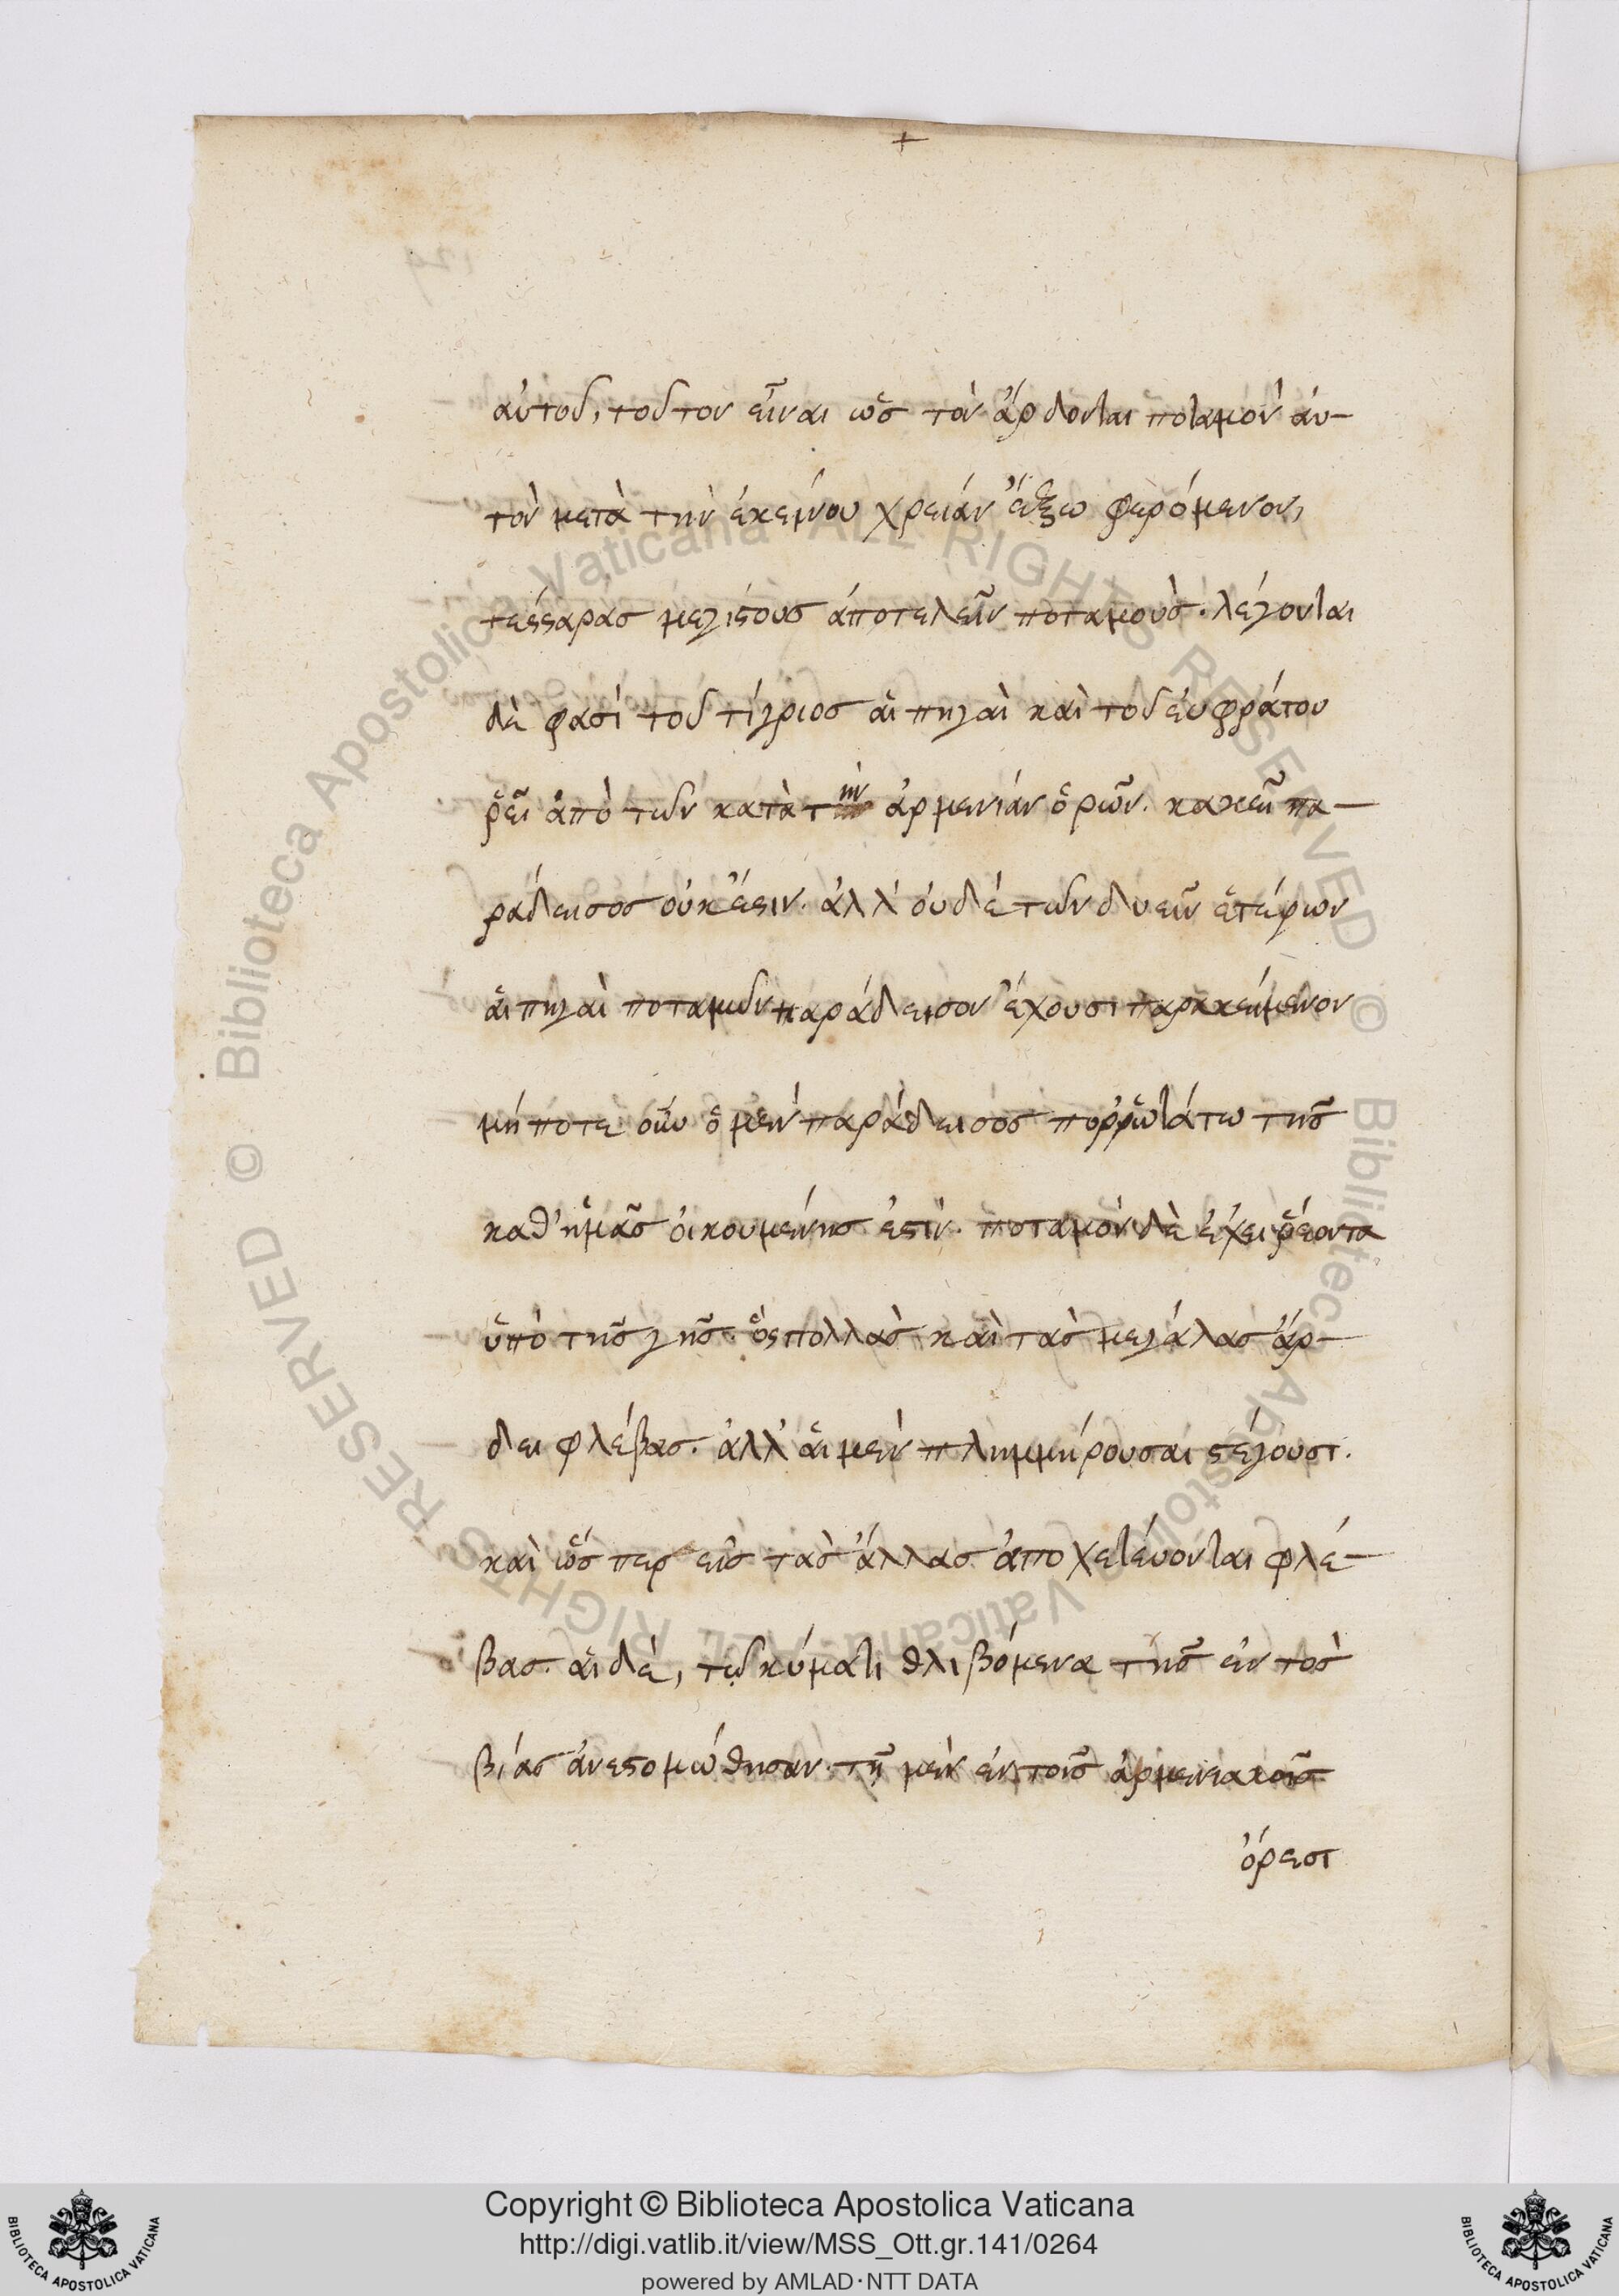 +
αὐτοῦ, τοῦτον εἶναι ὡς τὸν ἄρδονται ποταμὸν αὐ-
τὸν μετὰ τὴν ἐκείνου χρείαν ἔξω φερόμενον,
τέσσαρας μεγίστους ἀποτελεῖν ποταμούς. λέγονται
δὲ φασί τοῦ τίγριος αἱ πηγαὶ καὶ τοῦ ἐυφράτου
ῥεῖ ἀπὸ τῶν κατὰ τὴν ἀρμενίαν ὁρῶν. κακεῖ πα-
ράδεισος οὐκ ἔστιν. ἀλλ' ὀυδέ τῶν δυεῖν ἑτέρων
ἁι πηγαὶ ποταμῶν παράδεισον ἔχουσι παρακείμενον
μήποτε οὖν ὁ μὲν παράδεισος πορῥωτάτω τῆς
καθ' ἡμᾶς ὀικουμένης ἐστίν. ποταμὸν δὲ ἔχει ῥέοντα
ὑπὸ τῆς γῆς. ὃς πολλὰς καὶ τὰς μεγάλας ἄρ-
δει φλέβας. ἀλλ' ἁι μὲν πλημμύρουσαι στέγουσι.
καὶ ὥσπερ εἰς τὰς ἄλλας ἀποχετέυονται φλέ-
βας. ἁι δὲ, τῷ κύματι θλιβόμενα τῆς ἐντὸς
βίας ἀνεστομώθησαν. τῇ μὲν ἐν τοῖς ἀρμενιακοῖς
ὄρεσι
Copyright © Biblioteca Apostolica Vaticana
http://digi.vatlib.it/view/MSS_Ott.gr.141/0264
powered by AMLAD·NTT DATA
BIBLIOTECA APOSTOLICA VATICANA
BIBLIOTECA APOSTOLICA VATICANA
© Biblioteca Apostolica Vaticana ALL RIGHTS RESERVED
© Biblioteca Apostolica Vaticana ALL RIGHTS RESERVED